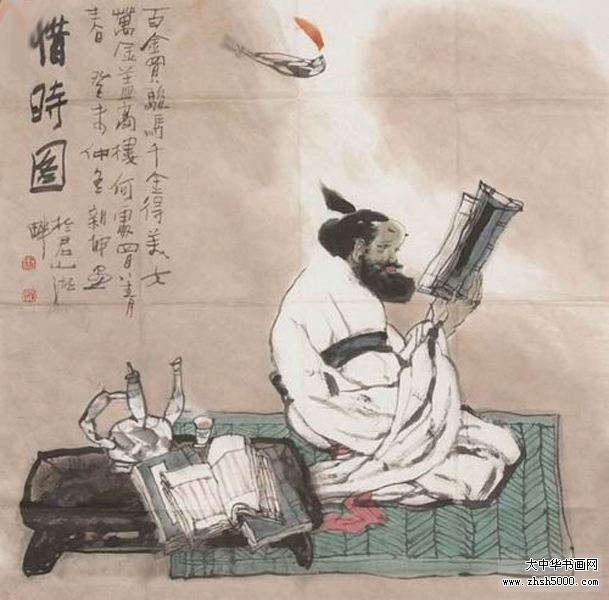 惜時图
百金買駿馬千金得美女
萬金盖高樓何處買青
春 癸未仲冬新坤画
於君山湖
畔
大中华书画网
www.zhsh5000.com